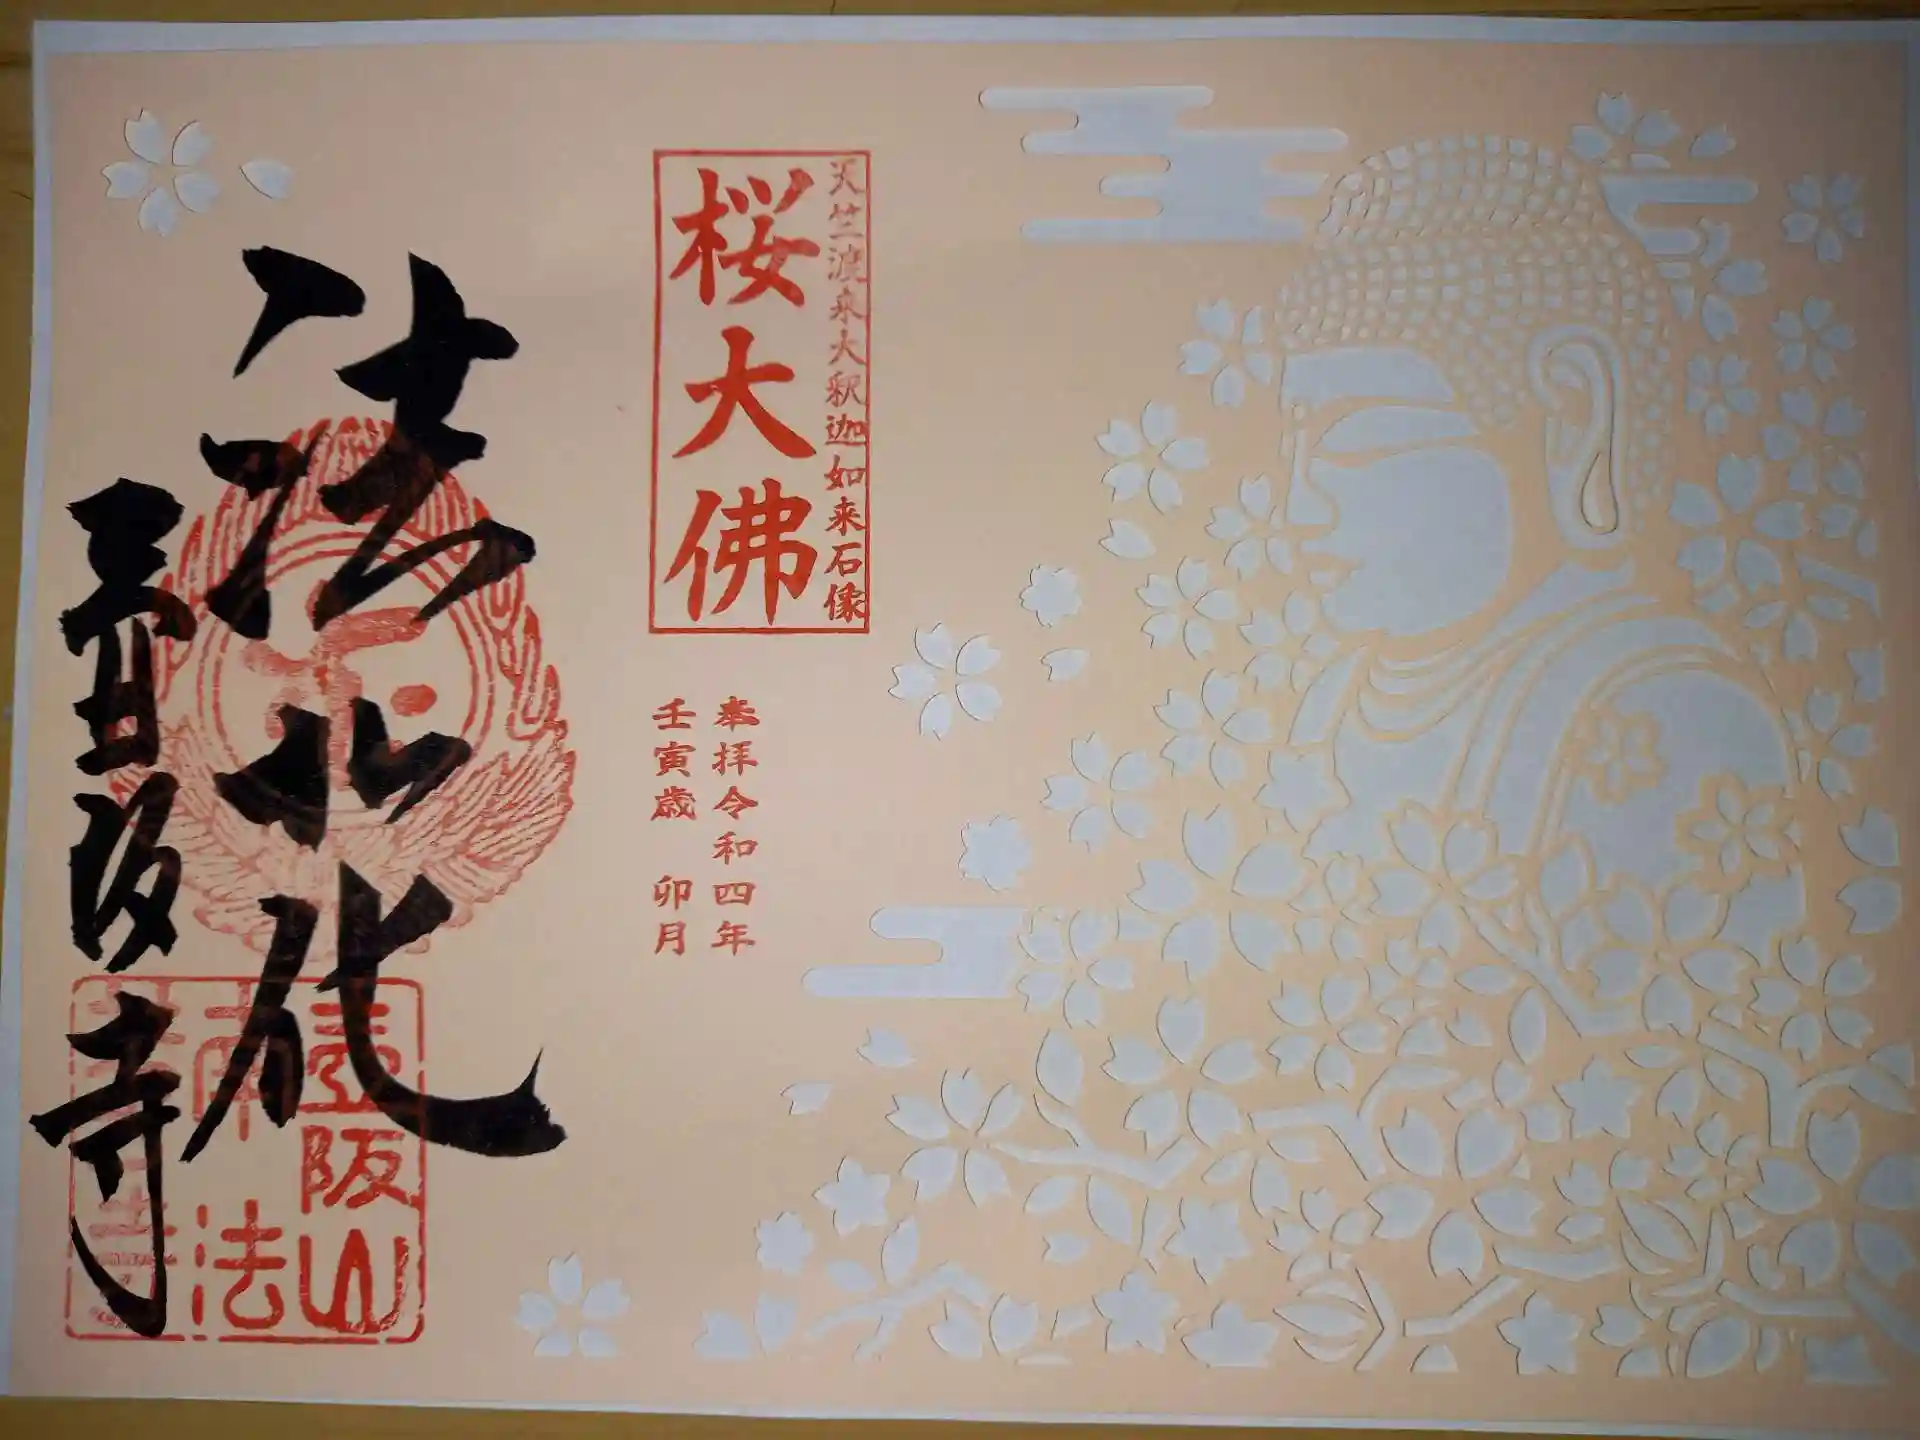 天竺渡来大釈迦如来石像
桜大佛
奉拝令和四年
壬寅歳 卯月
法北花
壺阪寺
壺阪山
南法